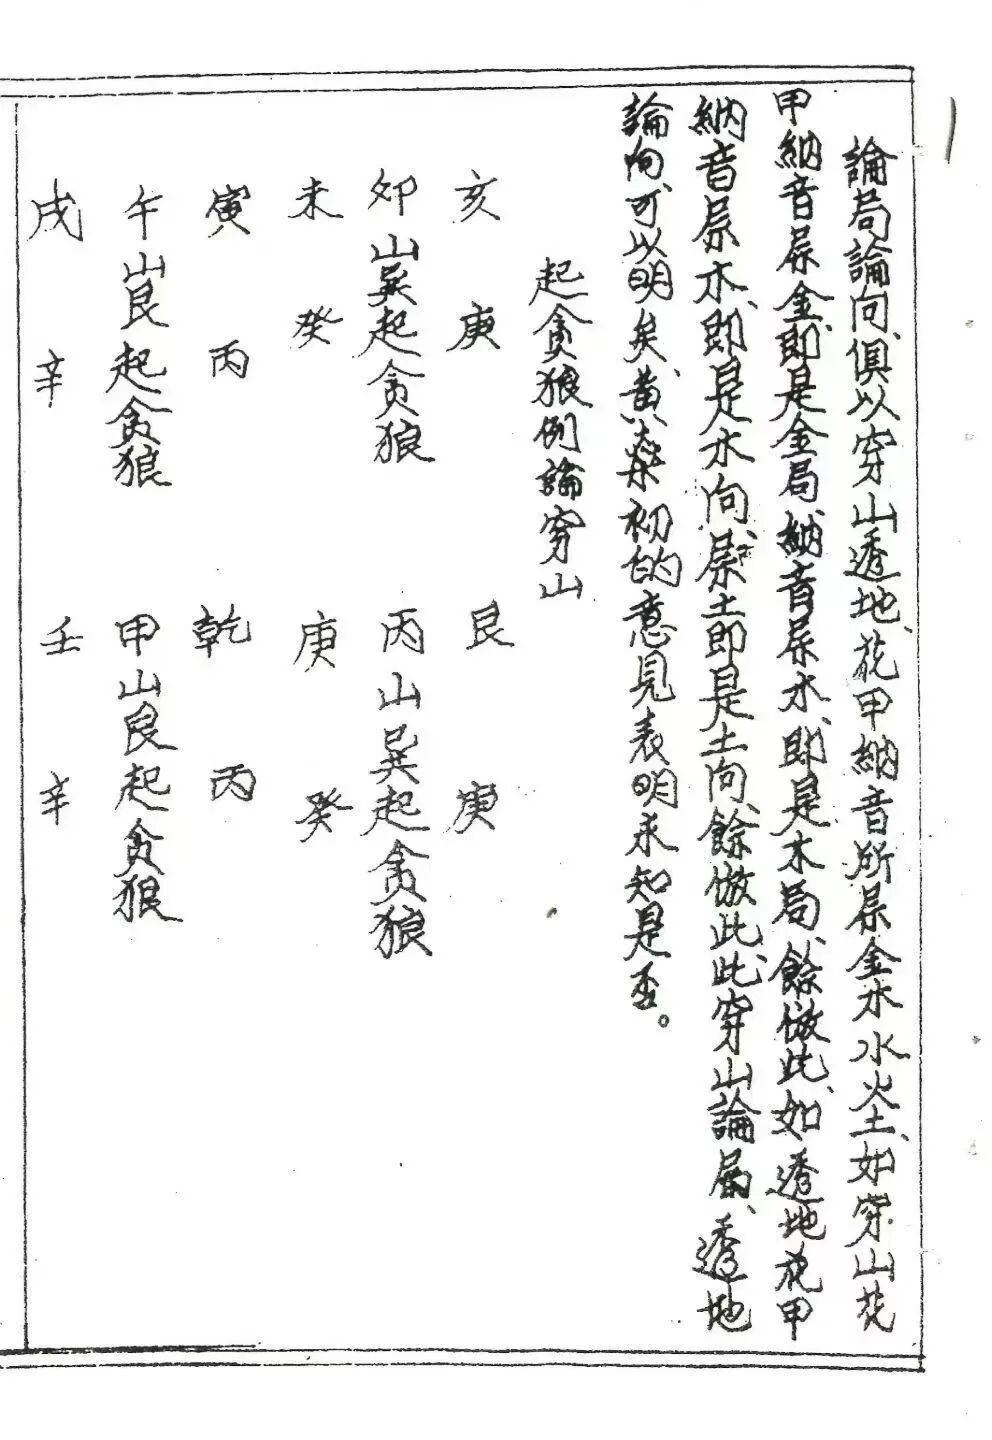 論局論向、俱以穿山透地、花甲納音所屬金木水火土、如穿山花
甲納音屬金、即是金局、納音屬木、即是木局、餘倣此、如透地花甲
納音屬水、即是水向、屬土即是土向、餘倣此、此穿山論局、透地
論向、可以明矣、黃燊初的意見表明未知是否。
起貪狼例論穿山
亥 庚 艮 庚
卯山巽起貪狼 丙山巽起貪狼
未 癸 庚 癸
寅 丙 乾 丙
午山艮起貪狼 甲山艮起貪狼
戌 辛 壬 辛